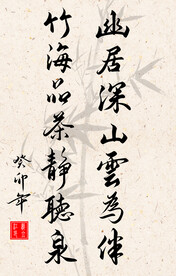 幽居深山雲為伴
竹海品茶靜聽泉
癸卯年